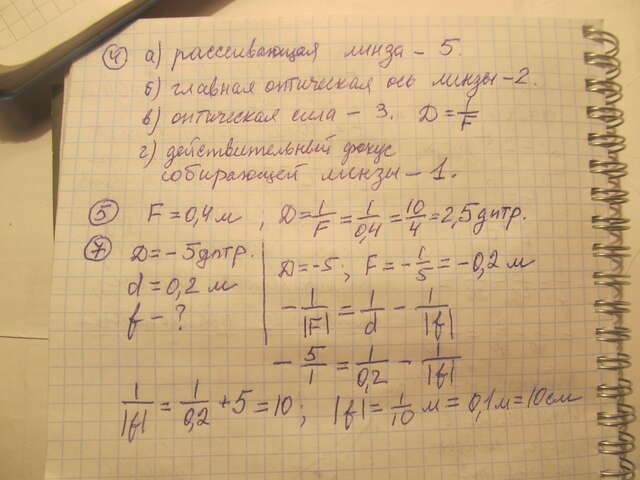 ④ а) рассеивающая линза – 5.
б) главная оптическая ось линзы – 2.
в) оптическая сила – 3. D = 1/F
г) действительный фокус
собирающей линзы – 1.
⑤ F = 0,4 м, D = 1/F = 1/0,4 = 10/4 = 2,5 дптр.
⑦ D = – 5 дптр. D = -5; F = – 1/5 = – 0,2 м
d = 0,2 м – 1/|F| = 1/d – 1/|f|
f – ?
– 5/1 = 1/0,2 – 1/|f|
1/|f| = 1/0,2 + 5 = 10; |f| = 1/10 м = 0,1 м = 10 см